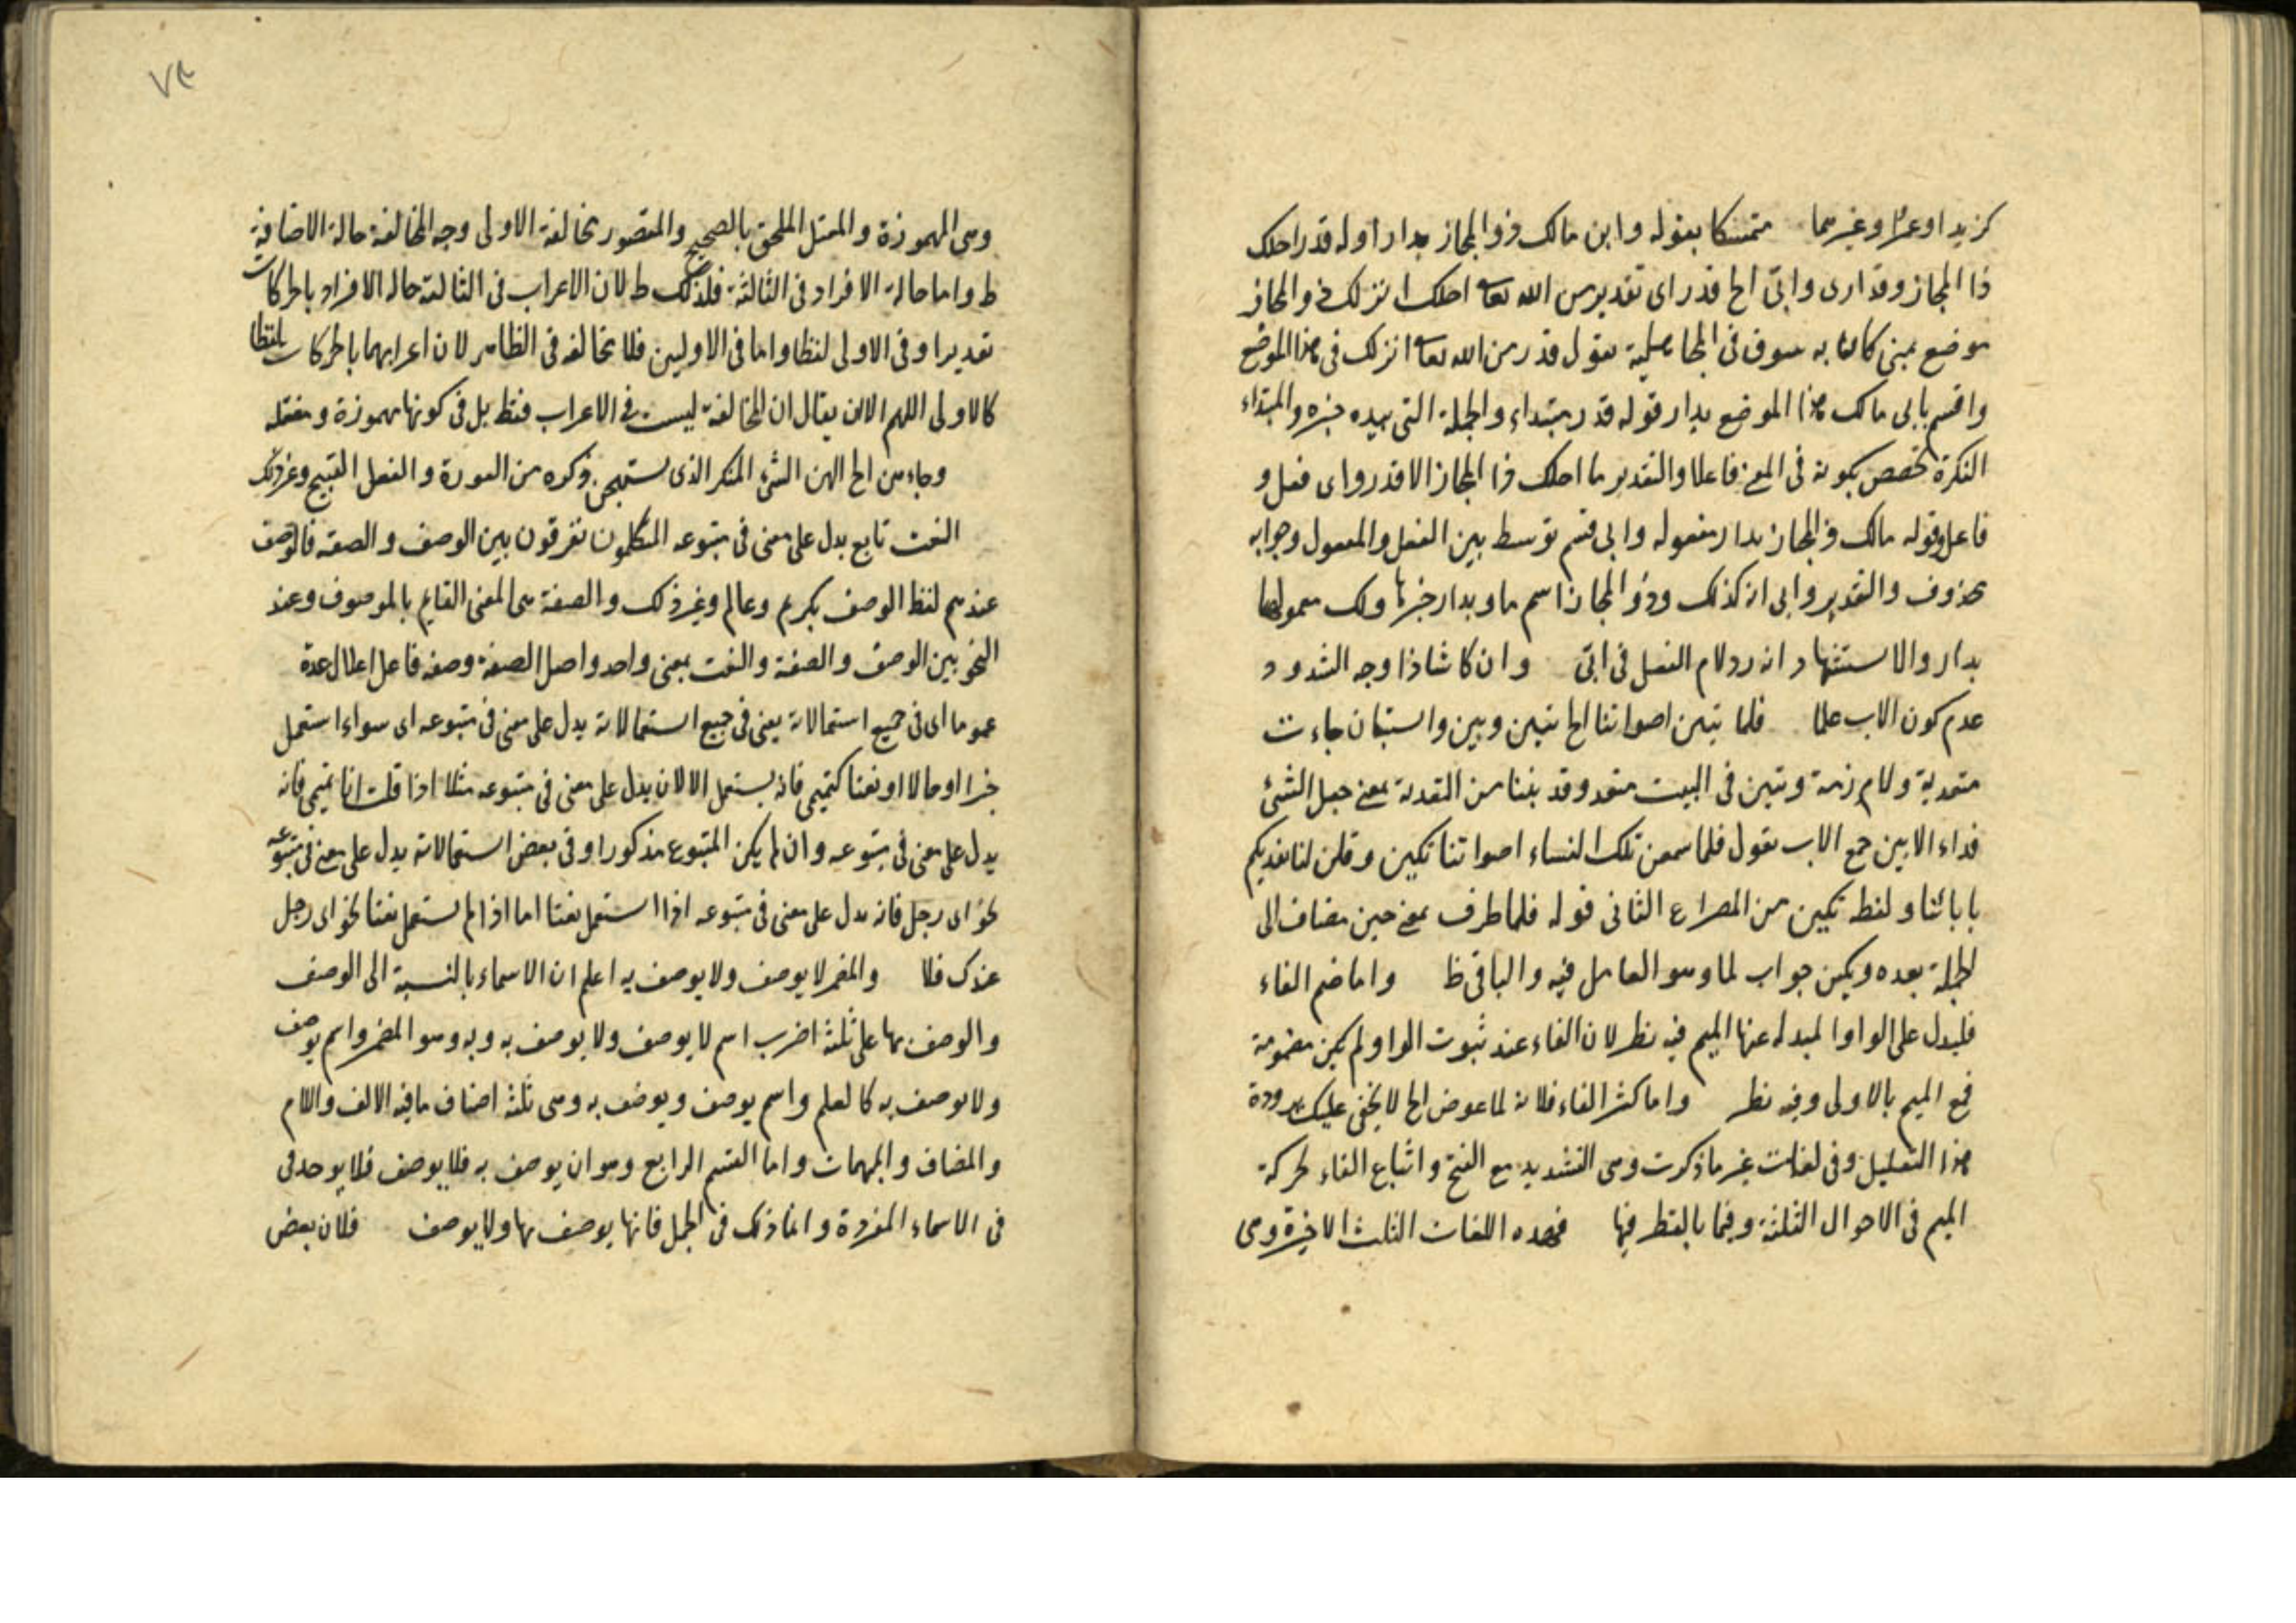 كزيد او عمرو غيرهما متمسكا بقوله وابن مالك ذو المجاز بدار اوله قدر احلك
ذا المجاز وقد ارى وابى الخ قدر اى تقدير من الله تعالى احلك انزلك ذو المجاز
موضع بمنى كان به سوق فى الجاهلية يقول قدر من الله تعالى انزلك فى هذا الموضع
واقسم بابى مالك هذا الموضع بدار قوله قدر مبتداء والجملة التى بعده خبره والمبتداء
النكرة تخصص بكونه فى المعنى فاعلا والتقدير ما احلك ذا المجاز الا قدر واى فعل و
فاعل وقوله مالك ذو المجاز بدار مفعوله وابى قسم توسط بين الفعل والمعمول وجوابه
محذوف والتقدير وابى انه كذلك وذو المجاز اسم ما وبدار خبرها ولك معمولها
بدار والاستشهاد انه رد لام الفعل فى ابى وان كا شاذا وجه الشذوذ
عدم كون الاب علما فلما تبين اصواتنا الخ تبين وبين واستبان جاءت
متعدية ولازمة وتبين فى البيت متعد وقد يننا من التفدية بمعنى جعل الشئ
فداء الابين جمع الاب يقول فلما سمعن تلك النساء اصواتنا بكين وقلن لنا نفديكم
بابائنا ولفظ بكين من المصراع الثانى قوله فلما ظرف بمعنى حين مضاف الى
الجملة بعده وبكين جواب لما وهو العامل فيه والباقى ظ واما ضم الفاء
فليدل على الواو المبدله عنها الميم فيه نظر لان الفاء عند ثبوت الواو لم يكن مضمومة
مع الميم بالاولى وفيه نظر واما كسر الفاء فلانه لما عوض الخ لا يخفى عليك برودة
هذا التعليل وفى لغات غير ما ذكرت وهى التشديد مع الفتح واتباع الفاء لحركة
الميم فى الاحوال الثلثة وفما بالقطر فيها فهده اللغات الثلث الاخيرة وهى
٧٤
وهى المهموزة والمعتل الملحق بالصحيح والمقصور مخالفة الاولى وجه المخالفة حالة الاضافة
ظ واما حالة الافراد فى الثالثة فلذلك ظ لان الاعراب فى الثالثة حاله الافراد بالحركات
تقديرا وفى الاولى لفظا واما فى الاوليين فلا تخالفه فى الظاهر لان اعرابهما بالحركات لفظا
كالاولى اللهم الا ان يقال ان المخالفة ليست فى الاعراب فقط بل فى كونها مهموزة ومعتله
وجاء هن الخ الهن الشئ المنكر الذى يستهجن ذكره من العورة والفعل القبيح وغير ذلك
النعت تابع يدل على معنى فى متبوعه المتكلمون تفرقون بين الوصف والصفه فالوصف
عندهم لفظ الوصف كريم وعالم وغير ذلك والصفة هى المعنى القايم بالموصوف وعند
النحويين الوصف والصفة والنعت بمعنى واحد واصل الصفة وصفه فاعل اعلال عدة
عموما اى فى جميع استعمالاته يعنى فى جميع استعمالاته يدل على معنى فى متبوعه اى سواء استعمل
خبرا او حالا او نعتا كتميمى فانه يستعمل الا لان يدل على معنى فى متبوعه مثلا اذا قلت انا تميمى فانه
يدل على معنى فى متبوعه وان لم يكن المتبوع مذكورا وفى بعض استعمالاته يدل على معنى فى متبوعه
نحو اى رجل فانه يدل على معنى فى متبوعه اذا استعمل نعتا اما اذا لم يستعمل نعتا نحو اى رجل
عندك فلا والمضمر لا يوصف ولا يوصف به اعلم ان الاسماء بالنسبة الى الوصف
والوصف بها على ثلثة اضرب اسم لا يوصف ولا يوصف به وبه وهو المضمر واسم يوصف
ولا يوصف به كالعلم واسم يوصف ويوصف به وهى ثلثة اصناف ما فيه الالف واللام
والمضاف والمبهمات واما القسم الرابع وهو ان يوصف به فلا يوصف فلا يوجد فى
فى الاسماء المفردة وانما ذلك فى الجمل فانها يوصف بها ولا يوصف فلان بعض